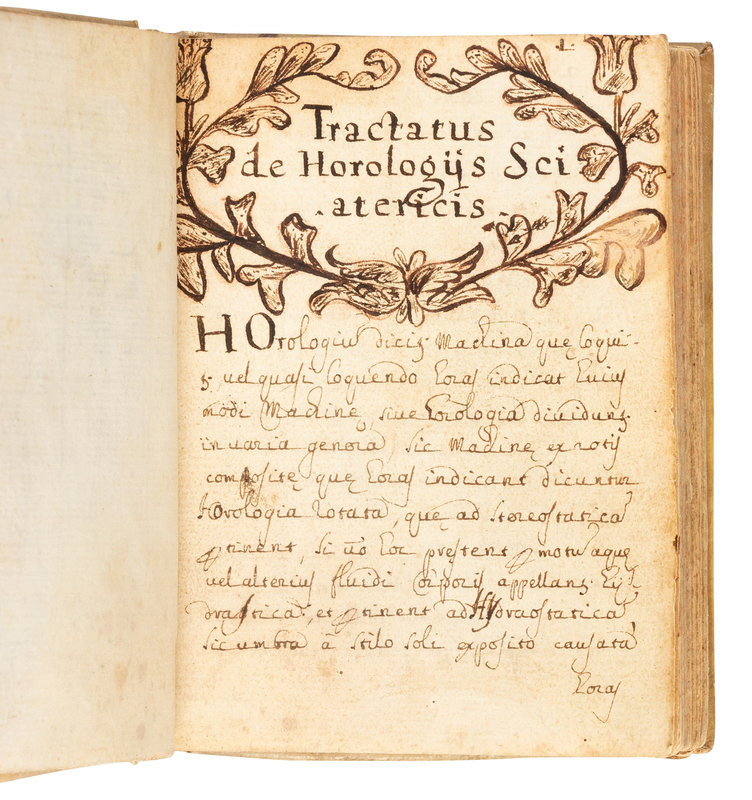 1.
Tractatus
de Horologijs Sci
atericis.
HOrologiu dicit Machina quę loqui-
t, vel quasi loquendo horas indicat huius
modi Machinę, siue horologia diuidunt
in uaria genera, sic Machinę ex rotis
compositę quę horas indicant dicuntur
Horologia Rotata, quę ad stereostatica
ꝑtinent, si uo hoc prestent ꝑ motu aquę
uel alterius fluidi corporis appellant Hy
draulica, et ꝑtinent ad Hydraostatica
sic umbra à stilo soli exposito causata
horas